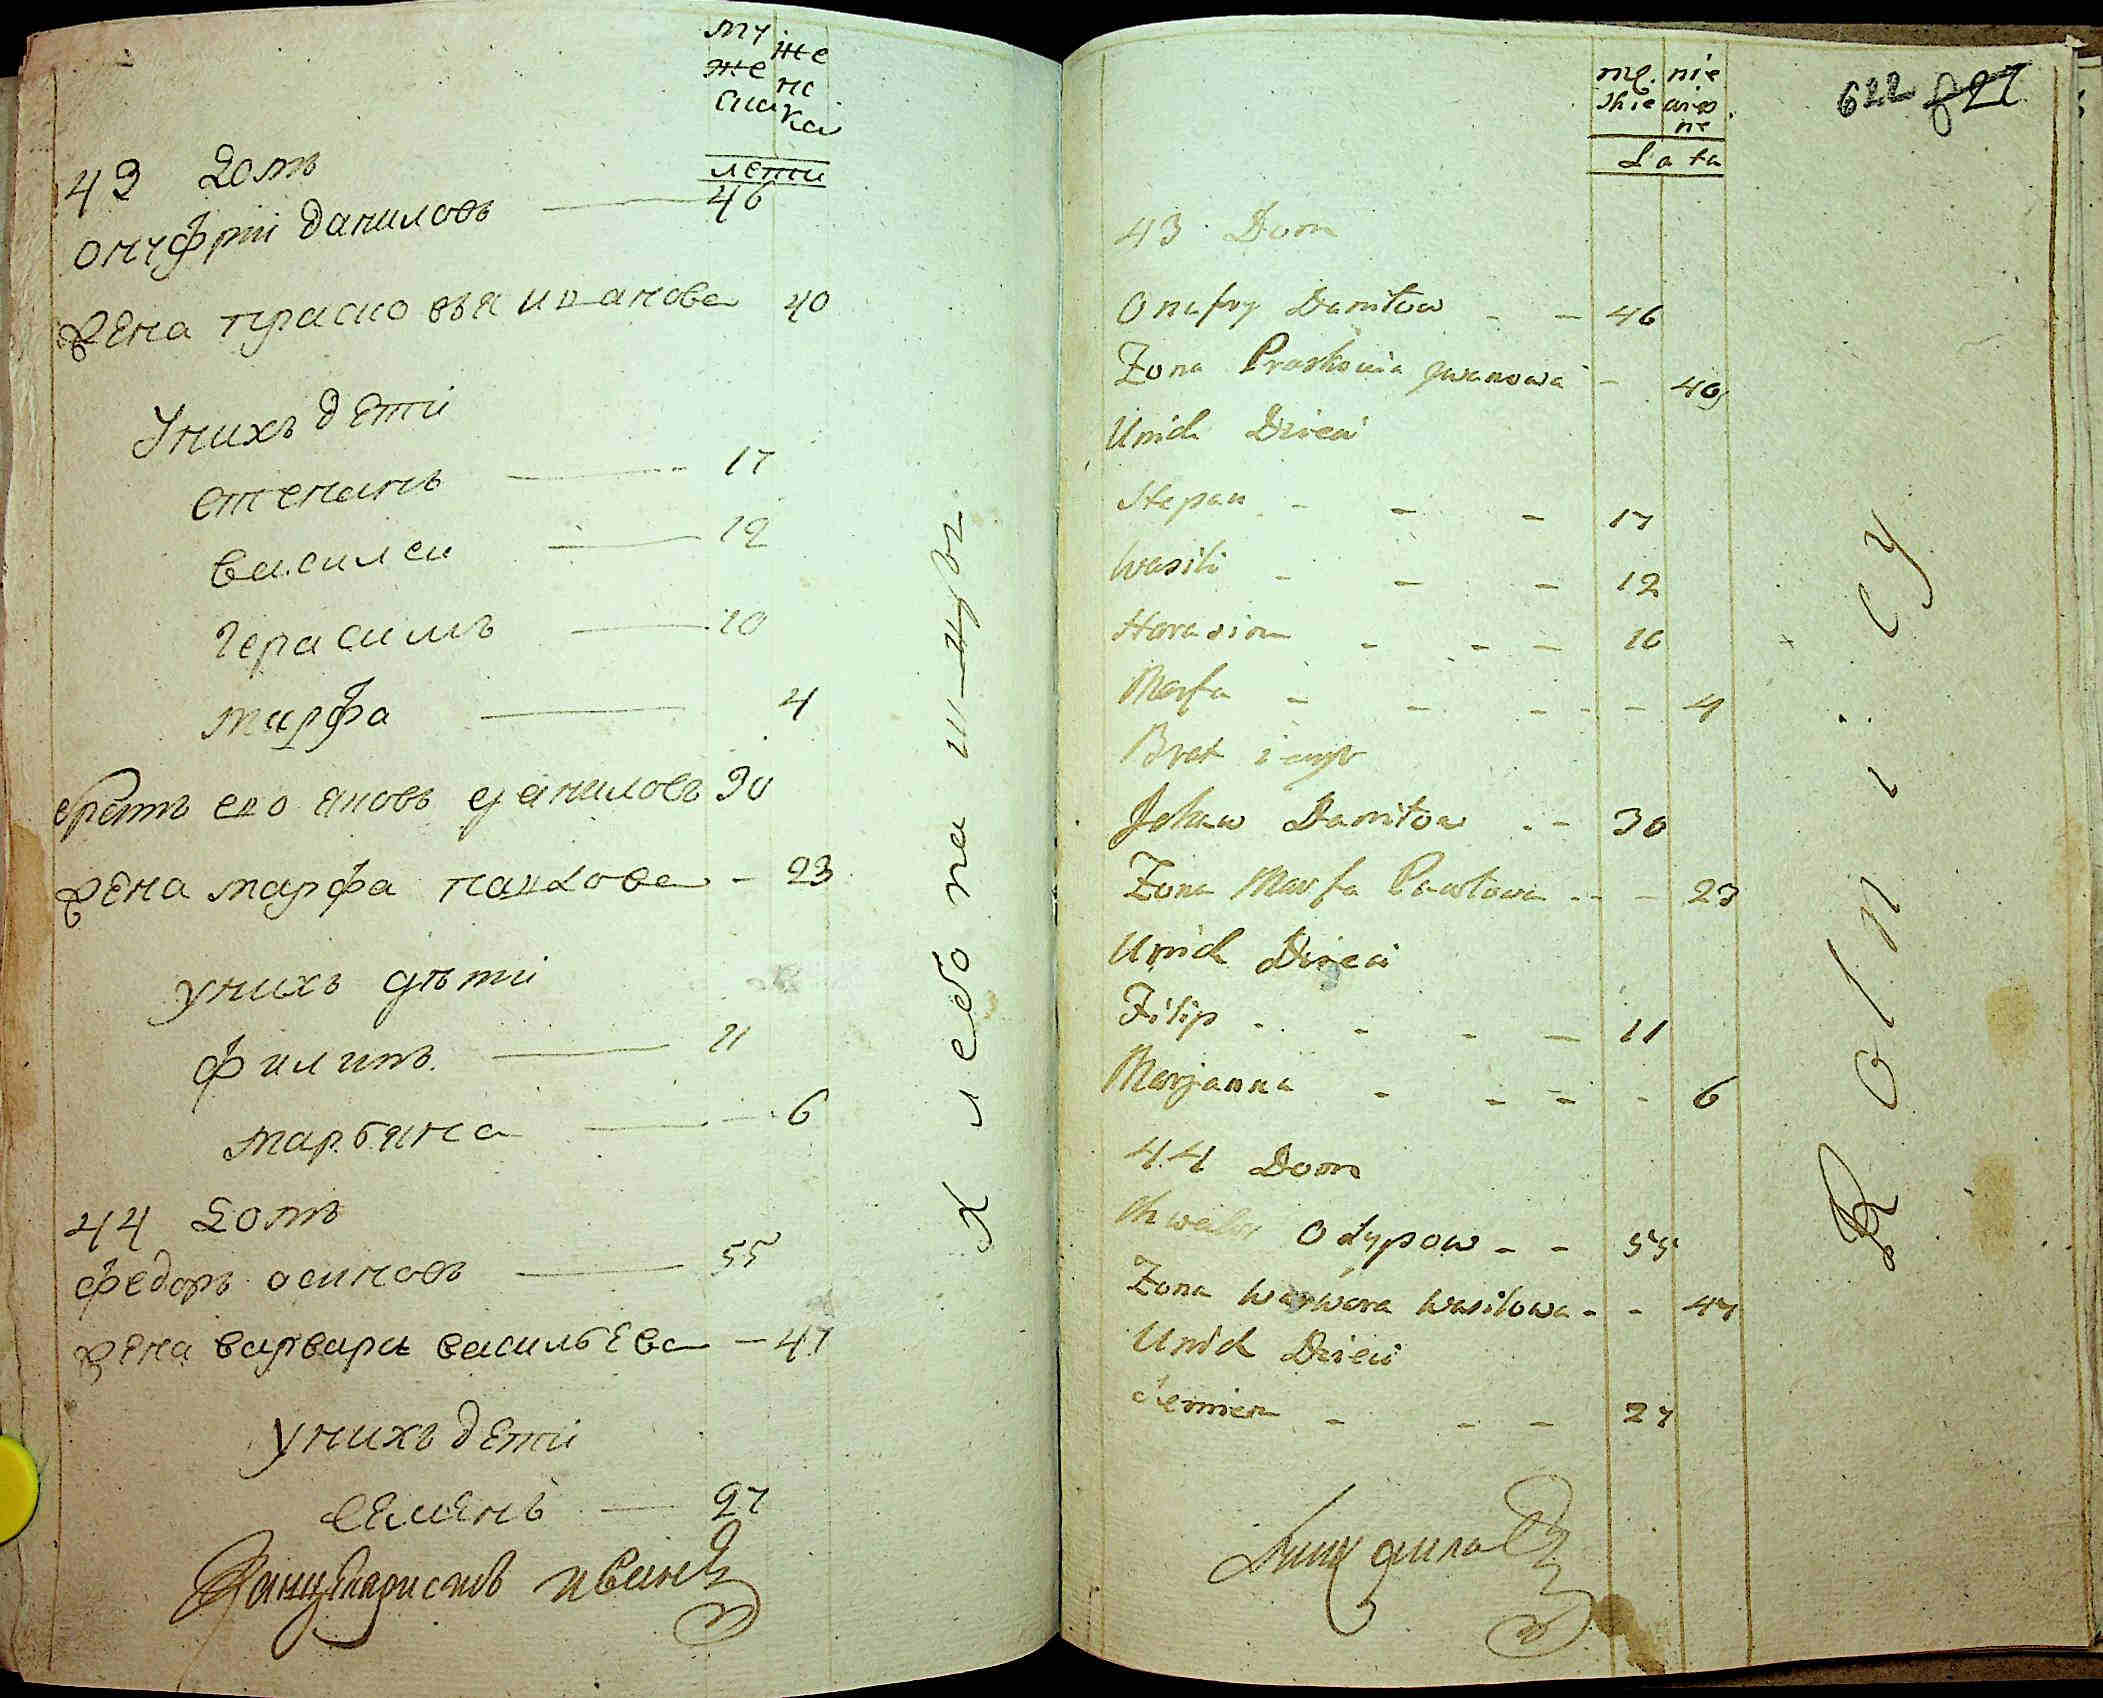 му же
же нс
ска ка
лети
43 Домъ
онуфрги даниловъ 46
жена прасковя иванова 40
Унихъ дети
степанъ 17
василеи 12
герасимъ 10
марфа 4
братъ его яковъ даниловъ 30
жена марфа павлова 23
унихъ дѣти
филипъ 11
марьяна 6
44 Домъ
федоръ осиповъ 55
жена варвара васильева 47
унихъ дети
семенъ 27
Канцеляристъ
Хлебопашцы
mę. nie
skie wias
ne
Lata
622 827
43 Dom
Onufry Daniłow 46
Żona Praskowia Jwanowa 40
Unich Dzieci
Stepan 17
Wasili 12
Harasim 10
Marfa 4
Brat iego
Jakow Daniłow 30
Żona Marfa Pawłowa 23
Unich Dzieci
Filip 11
Marjanna 6
44 Dom
Chwedor Osypow 55
Żona Warwara Wasilowa 47
Unich Dzieci
Semien 27
Rolnicy